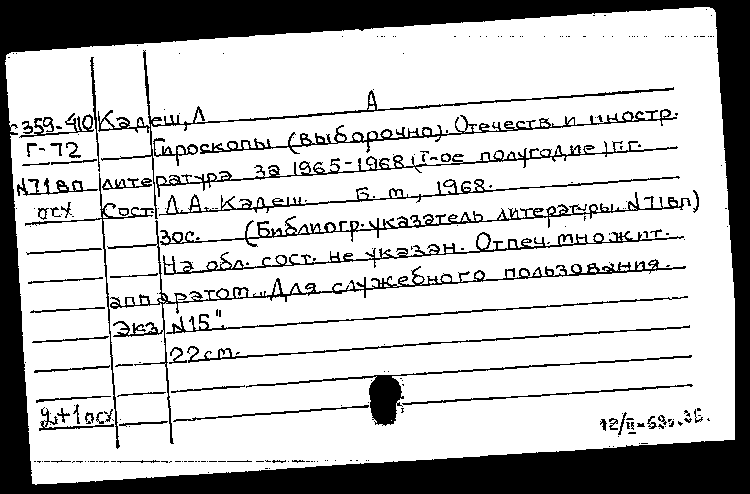 А
с359-410 Кадеш, Л
Г-72 Гироскопы (выборочно). Отечеств. и иностр.
N71вп литература за 1965-1968 (I-ое полугодие) г.г.
осх Сост. Л.А. Кадеш. Б.м., 1968.
30с. (Библиогр. указатель литературы. N71вп)
На обл. сост. не указан. Отпеч. множит.
аппаратом. „Для служебного пользования.
Экз. N15".
22см.
2+1осх
12/II-69г.